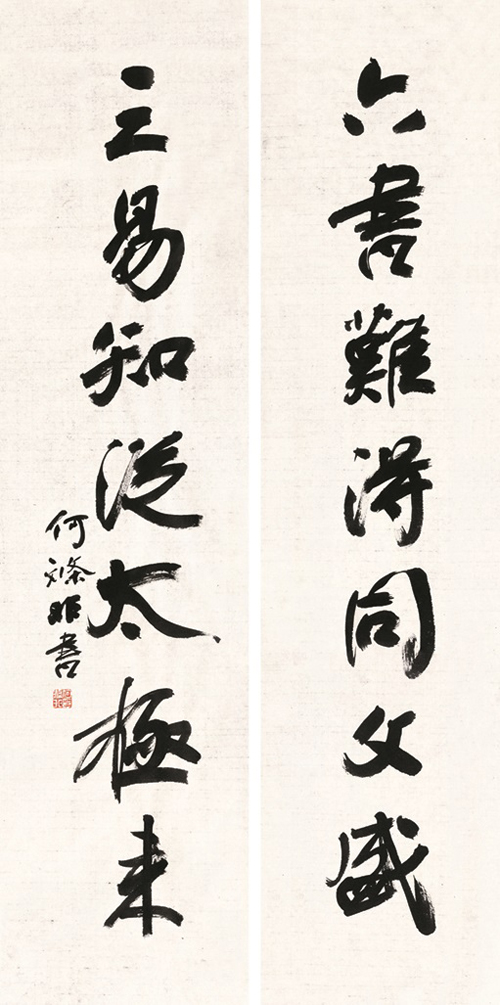 六書難得同文盛
三易知從太極来
何滌非書